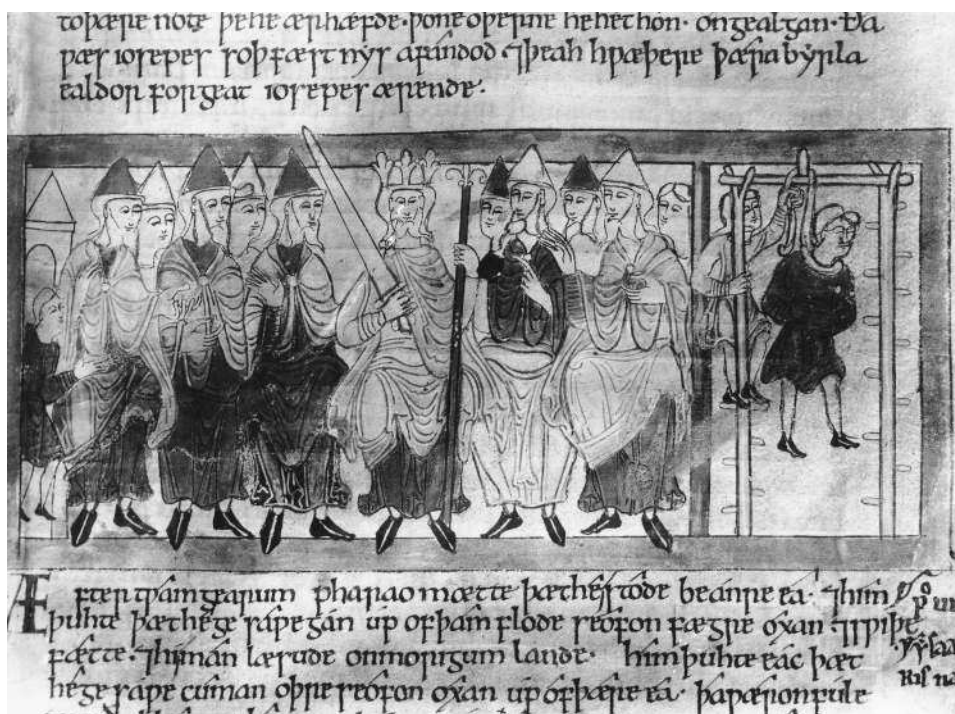 to þære note þe he ær hæfde · þone oþerne he het hon · on gealgan · Ða
wæs iosepes soþfæst nys afandod ⁊ þeah hwæþere þæra byrla
ealdor forgeat iosepes ærende ·
Æfter twam gearum pharao mætte þæt he stode be anre ea · ⁊ him
þuhte þæt he ge sawe gan up of þam flode seofon fægre oxan ⁊ swiþe
fætte · ⁊ hi man læsude on morigum lande · him þuhte eac þæt
he ge sawe cuman oþre seofon oxan up of þære ea · þa wæron fule